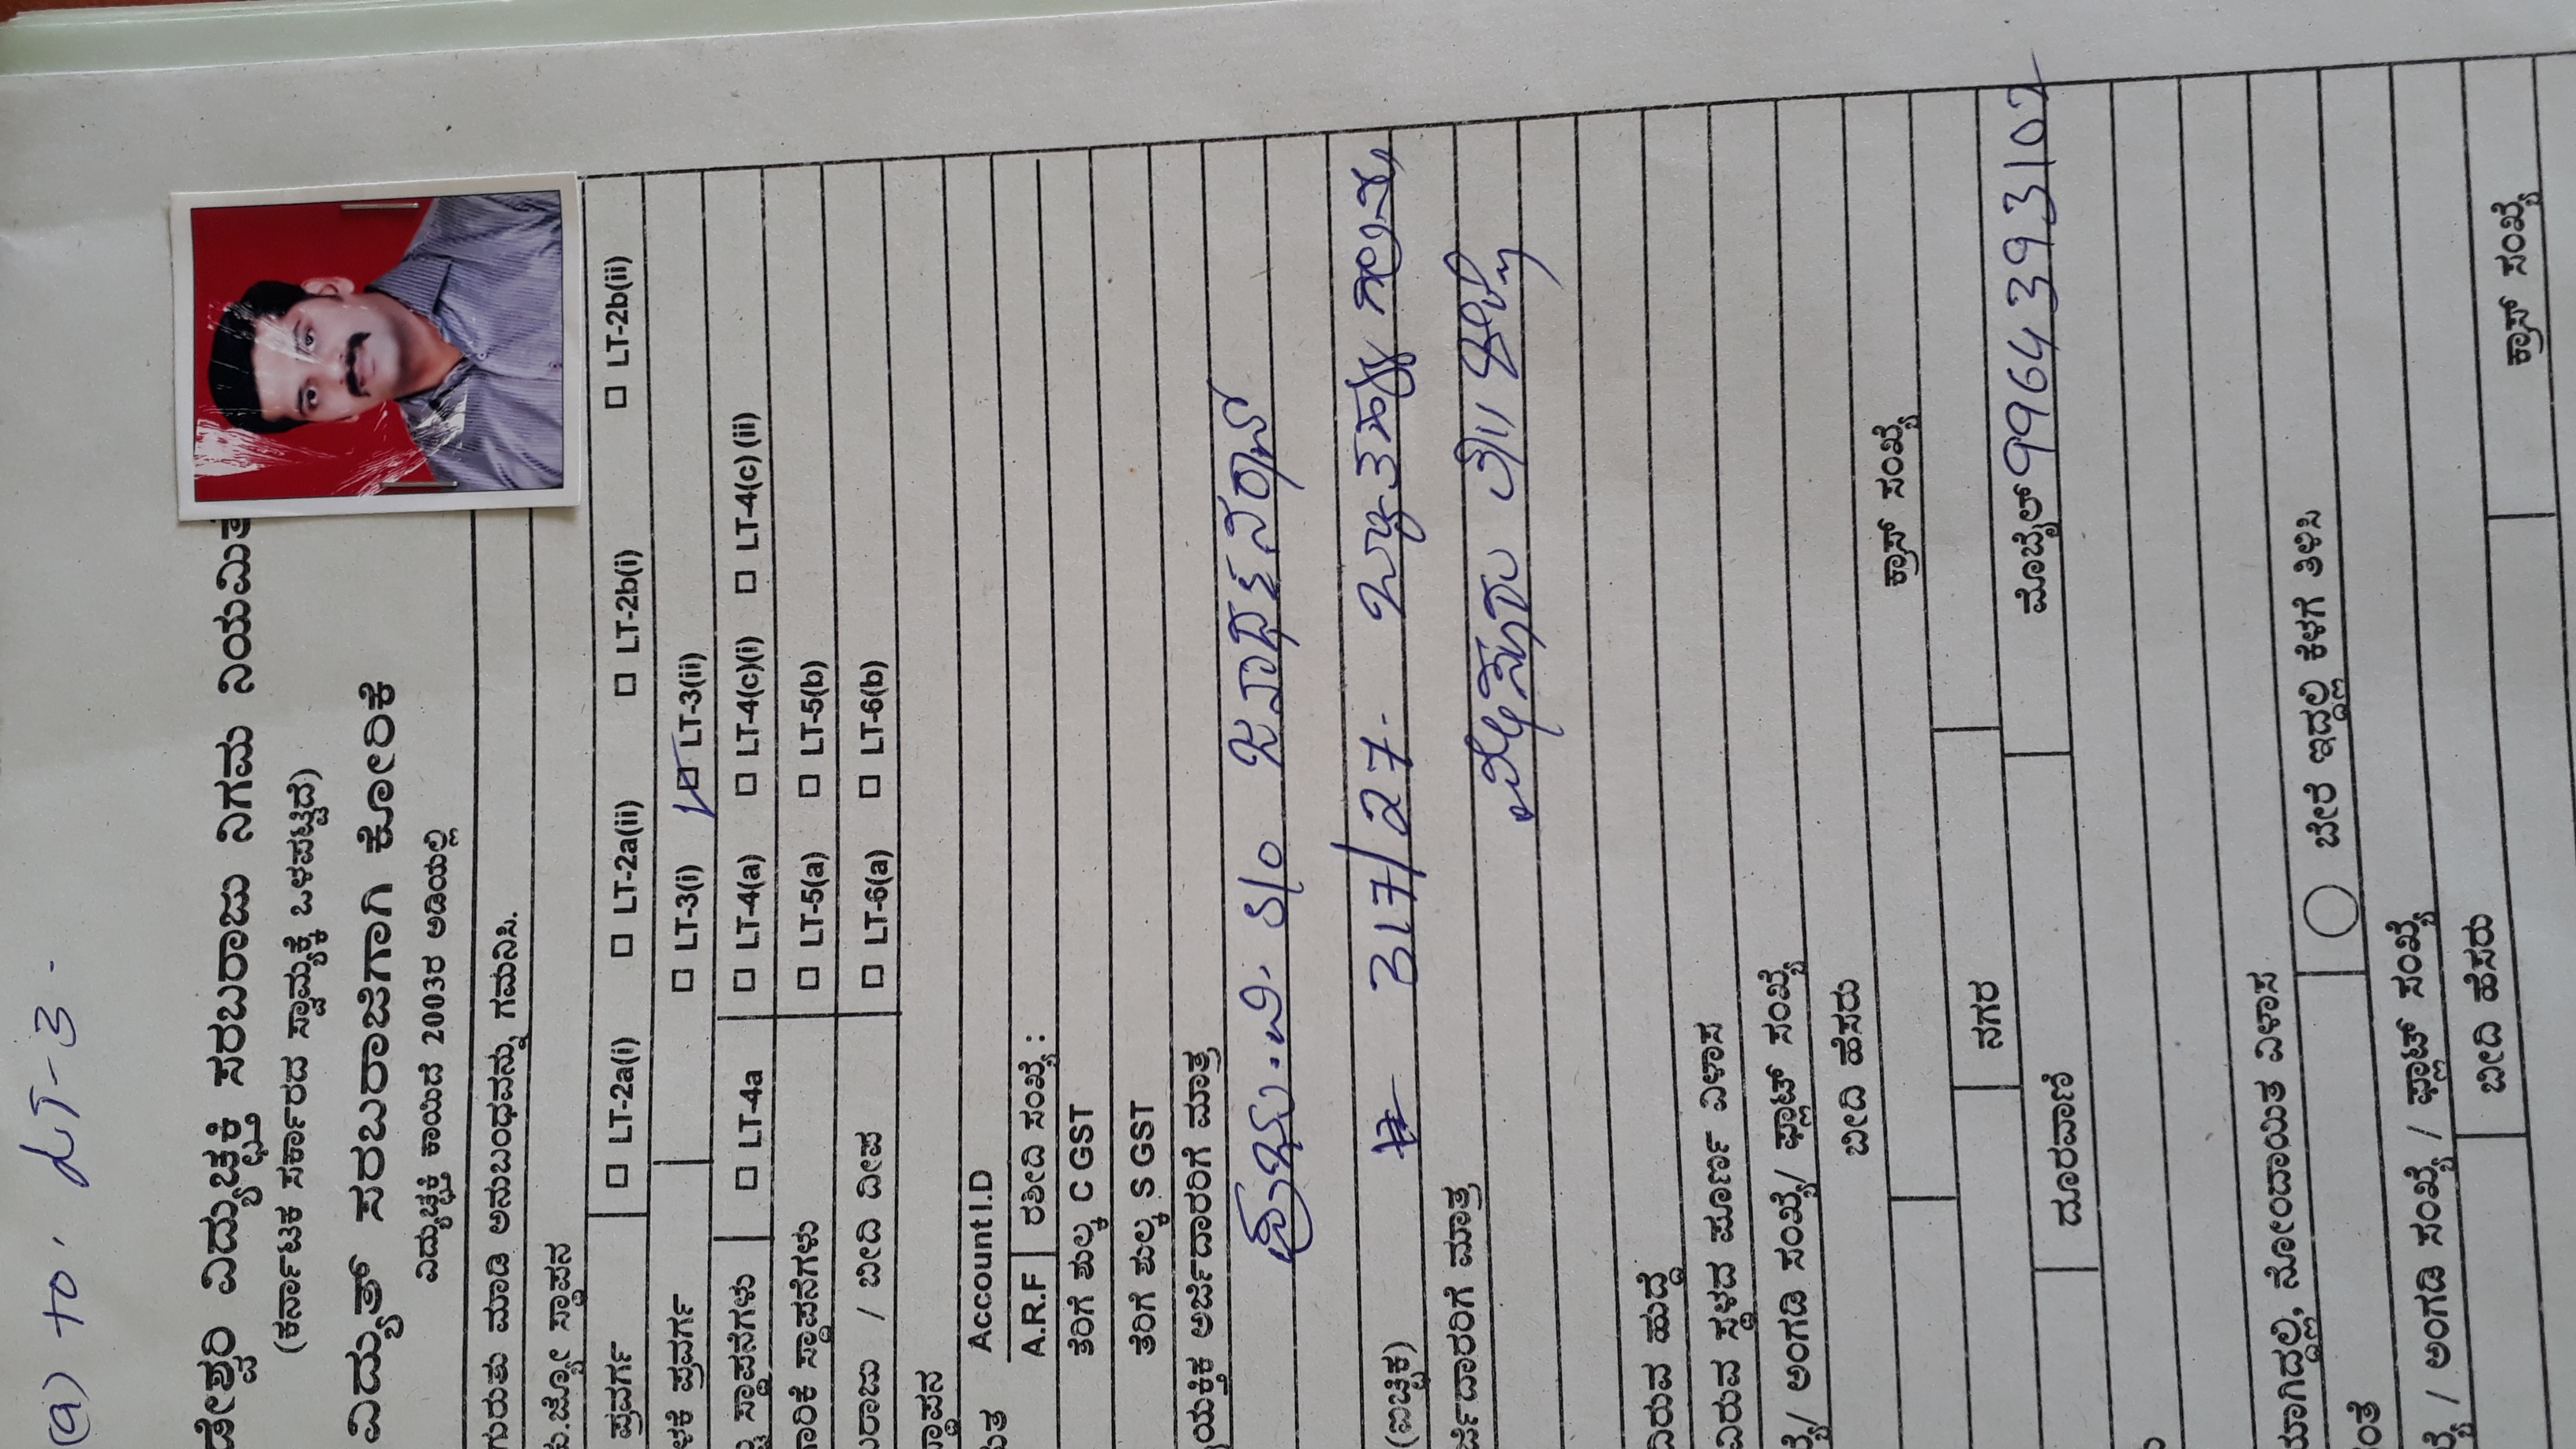 (a) to. LT-3.
ಡೇಶ್ವರಿ ವಿದ್ಯುಚ್ಛಕ್ತಿ ಸರಬರಾಜು ನಿಗಮ ನಿಯಮಿತ
(ಕರ್ನಾಟಕ ಸರ್ಕಾರದ ಸ್ವಾಮ್ಯಕ್ಕೆ ಒಳಪಟ್ಟಿದೆ)
ವಿದ್ಯುತ್ ಸರಬರಾಜಿಗಾಗಿ ಕೋರಿಕೆ
ವಿದ್ಯುಚ್ಛಕ್ತಿ ಕಾಯಿದೆ 2003ರ ಅಡಿಯಲ್ಲಿ
ಗುರುತು ಮಾಡಿ ಅನುಬಂಧವನ್ನು ಗಮನಿಸಿ.
ಕು.ಜ್ಯೋ ಸ್ಥಾಪನ
ಪ್ರವರ್ಗ □ LT-2a(i) □ LT-2a(ii) □ LT-2b(i) □ LT-2b(ii)
ಳಕೆ ಪ್ರವರ್ಗ □ LT-3(i) □ LT-3(ii)
ಸ್ಥಾಪನೆಗಳು □ LT-4a □ LT-4(a) □ LT-4(c)(i) □ LT-4(c)(ii)
ಗಾರಿಕೆ ಸ್ಥಾಪನೆಗಳು □ LT-5(a) □ LT-5(b)
ಬರಾಜು / ಬೀದಿ ದೀಪ □ LT-6(a) □ LT-6(b)
ಸ್ಥಾಪನ
Account I.D
A.R.F ರಶೀದಿ ಸಂಖ್ಯೆ :
ತೆರಿಗೆ ಶುಲ್ಕ C GST
ತೆರಿಗೆ ಶುಲ್ಕ S GST
ಯಕ್ತಿಕ ಅರ್ಜಿದಾರರಿಗೆ ಮಾತ್ರ
S/o ಜನಾರ್ಧನ
(ಐಚ್ಛಿಕ) # 317/27.
ರ್ಜಿದಾರರಿಗೆ ಮಾತ್ರ
ವಿರುವ ಹುದ್ದೆ
ವಿರುವ ಸ್ಥಳದ ಪೂರ್ಣ ವಿಳಾಸ
ಖ್ಯೆ/ ಅಂಗಡಿ ಸಂಖ್ಯೆ/ ಫ್ಲಾಟ್ ಸಂಖ್ಯೆ
ಬೀದಿ ಹೆಸರು ಕ್ರಾಸ್ ಸಂಖ್ಯೆ
ನಗರ
ದೂರವಾಣಿ ಮೊಬೈಲ್ 9964393102
ಮಾಗಿದ್ದಲ್ಲಿ, ನೋಂದಾಯಿತ ವಿಳಾಸ
ಂತೆ ಬೇರೆ ಇದ್ದಲ್ಲಿ ಕೆಳಗೆ ತಿಳಿಸಿ
ಖ್ಯೆ / ಅಂಗಡಿ ಸಂಖ್ಯೆ / ಫ್ಲಾಟ್ ಸಂಖ್ಯೆ
ಬೀದಿ ಹೆಸರು ಕ್ರಾಸ್ ಸಂಖ್ಯೆ